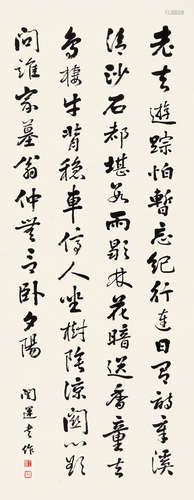 老去遊踪怕暫忘紀行連日有詩章溪
清沙石都堪數雨歇林花暗送香童去
鳥棲牛背穩車停人坐樹陰涼關心欲
問誰家墓翁仲無言臥夕陽
運作